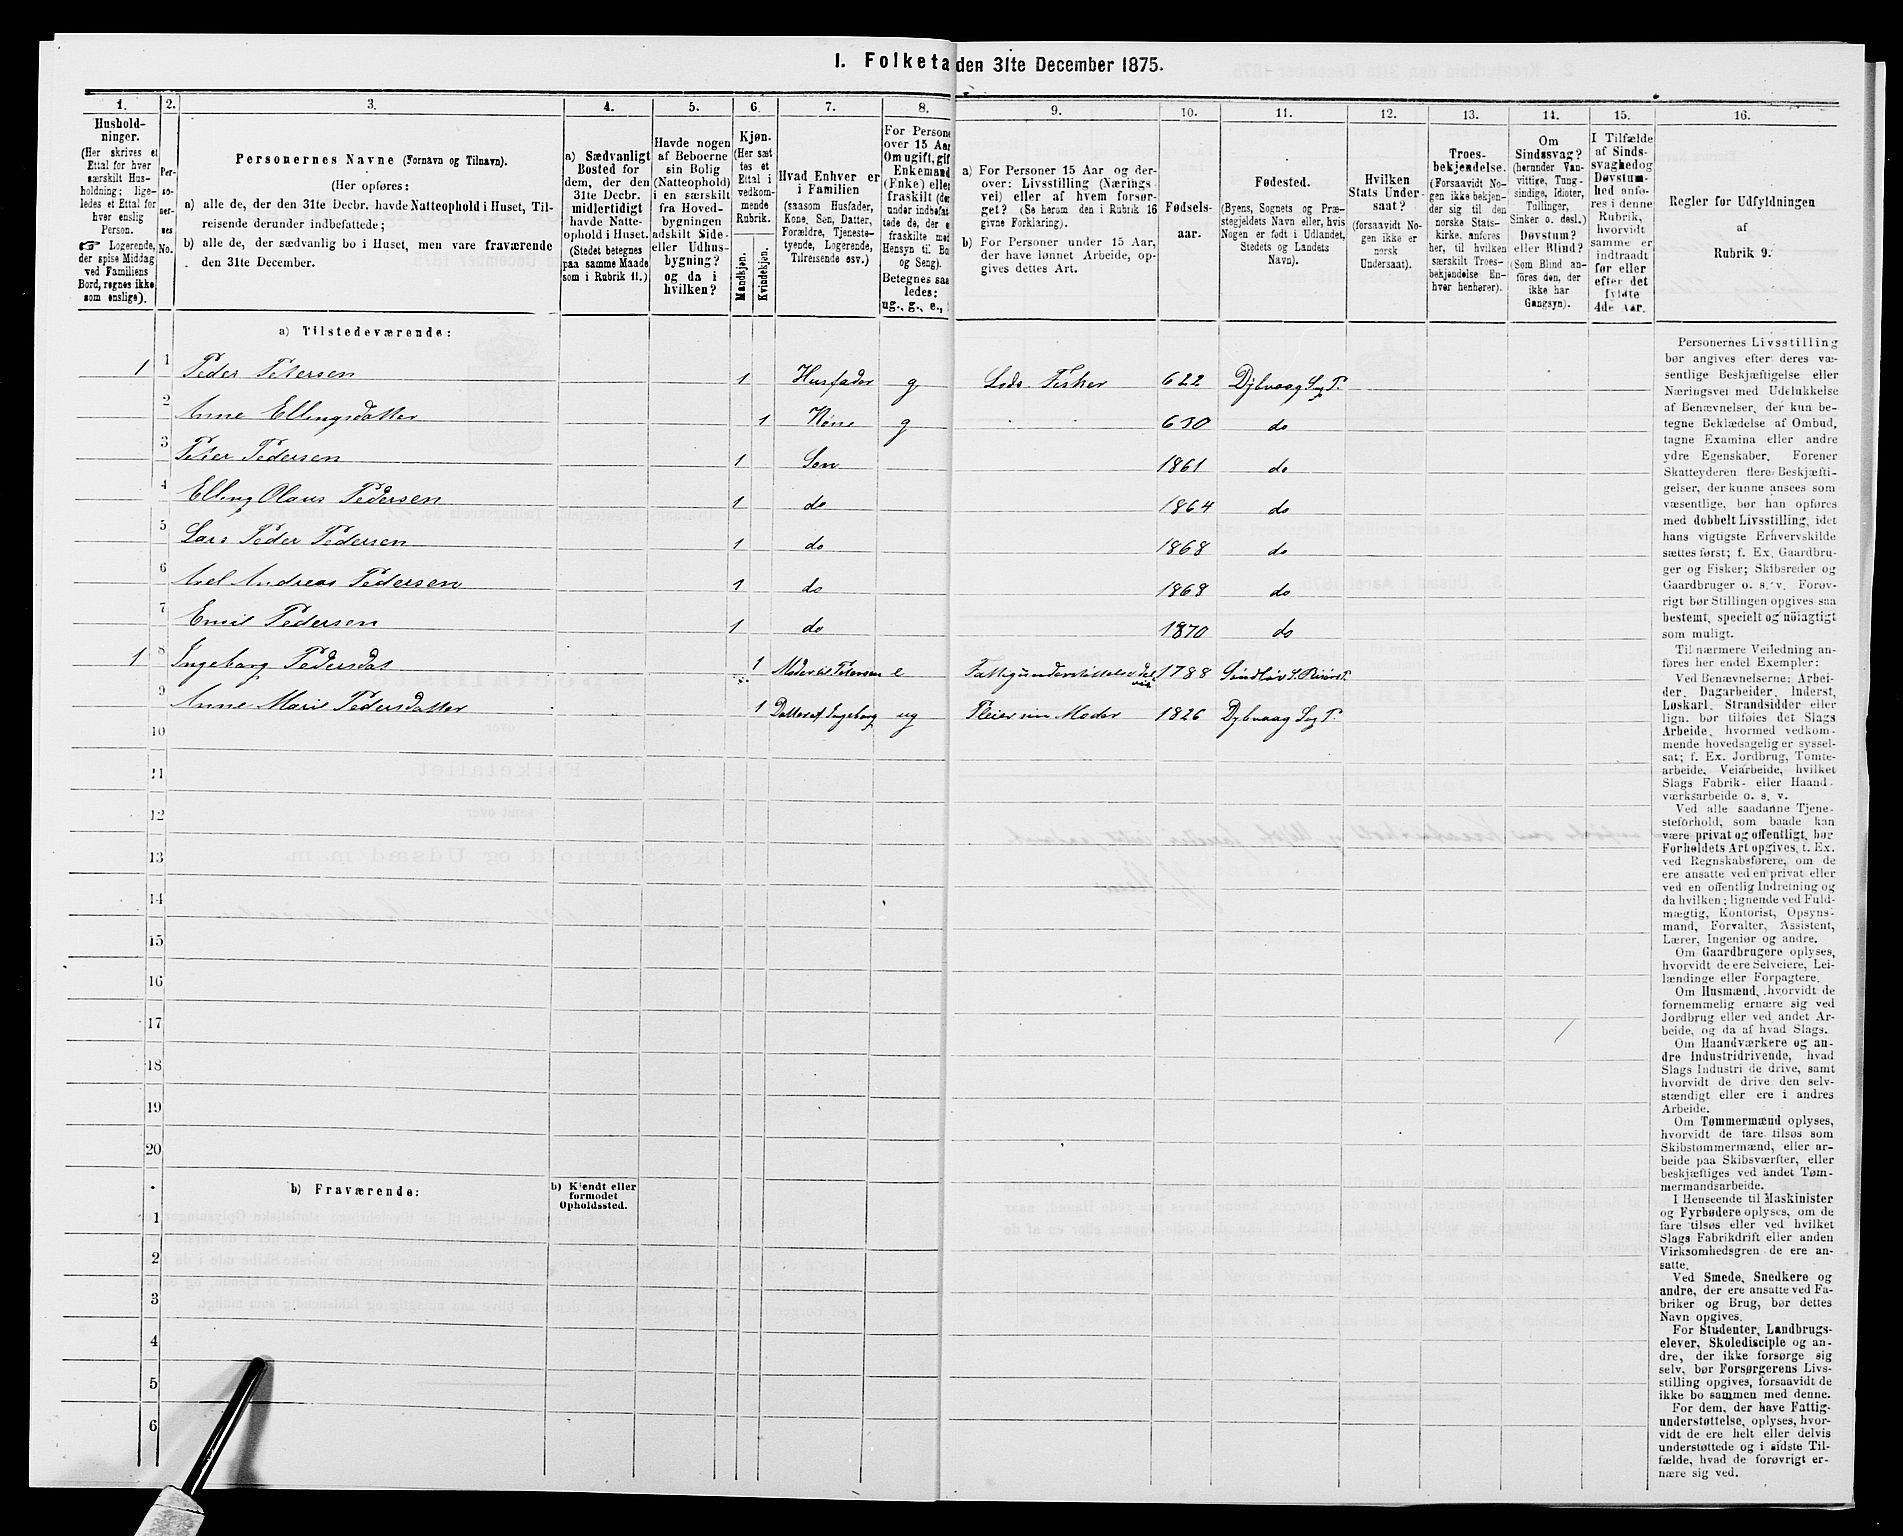 1. Folketa den 31te December 1875.
1. 2. 3. 4. 5. 6. 7. 8. 9. 10. 11. 12. 13. 14. 15. 16.
Hushold-
ninger.
(Her skrives et
Ettal for hver
særskilt Hus-
holdning; lige-
ledes et Ettal for
hver enslig
Person.
☞ Logerende,
der spise Middag
ved Familiens
Bord, regnes ikke
som enslige).
Per-
so-
ner-
nes
No.
Personernes Navne (Fornavn og Tilnavn).
(Her opføres:
a) alle de, der den 31te Decbr. havde Natteophold i Huset, Til-
reisende derunder indbefattede;
b) alle de, der sædvanlig bo i Huset, men vare fraværende
den 31te December.
a) Sædvanligt
Bosted for
dem, der den
31te Decbr.
midlertidigt
havde Natte-
ophold i Huset.
(Stedet betegnes
paa samme Maade
som i Rubrik 11.)
Havde nogen
af Beboerne
sin Bolig
(Natteophold)
i en særskilt
fra Hoved-
bygningen
adskilt Side-
eller Udhus-
bygning?
og da i
hvilken?
Kjøn.
(Her sæt-
tes et
Ettal i
vedkom-
mende
Rubrik.
Mandkjøn.
Kvindekjøn.
Hvad Enhver er
i Familien
(saasom Husfader,
Kone, Søn, Datter,
Forældre, Tjeneste-
tyende, Logerende,
Tilreisende osv.)
For Persone
over 15 Aar
Om ugift, gif
Enkemand
(Enke) eller
fraskilt (der
under indbefat
tede de, der e
fraskilte med
Hensyn til Bo
og Seng).
Betegnes saa
ledes:
ug., g., e.,
a) For Personer 15 Aar og der-
over: Livsstilling (Nærings-
vei) eller af hvem forsør-
get? (Se herom den i Rubrik 16
givne Forklaring).
b) For Personer under 15 Aar,
der have lønnet Arbeide, op-
gives dettes Art.
Fødsels-
aar.
Fødested.
(Byens, Sognets og Præ-
stegjeldets Navn eller, hvis
Nogen er født i Udlandet,
Stedets og Landets
Navn).
Hvilken
Stats Under-
saat?
(forsaavidt No-
gen ikke er
norsk
Undersaat).
Troes-
bekjendelse.
(Forsaavidt No-
gen ikke bekjen-
der sig til den
norske Stats-
kirke, anføres
her, til hvilken
særskilt Troes-
bekjendelse En-
hver henhører).
Om
Sindssvag?
(herunder Van-
vittige, Tung-
sindige, Idioter,
Tullinger,
Sinker o. desl.)
Døvstum?
eller Blind?
(Som Blind an-
føres den, der
ikke har
Gangsyn).
I Tilfælde
af Sinds-
svaghed og
Døvstum-
hed anfø-
res i denne
Rubrik,
hvorvidt
samme er
indtraadt
før eller
efter det
fyldte
4de Aar.
Regler før Udfyldningen
af
Rubrik 9.
a) Tilstedeværende:
1 1 Peder Petersen 1 Husfader g Lods Fisker 622 Dybvaag Sg P
2 Anne Ellingsdatter 1 Kone g 630 do
3 Peter Pedersen 1 Søn 1861 do
4 Elling Olaus Pedersen 1 do 1864 do
5 Lars Peder Pedersen 1 do 1868 do
6 Axel Andreas Pedersen 1 do 1868 do
7 Emil Pedersen 1 do 1870 do
1 8 Ingeborg Pedersdat 1 Moder til Petersen e Fattigunderstøttelse del vis 1788 Søndløv S. Risør P.
9 Anne Marie Pedersdatter 1 Datter af Ingeborg ug Pleier sin Moder 1826 Dybvaag Sg P.
10
11
12
13
14
15
16
17
18
19
20
b) Fraværende:
b) Kjendt eller
formodet
Opholdssted.
1
2
3
4
5
6
Personernes Livsstilling
bør angives efter deres væ-
sentlige Beskjæftigelse eller
Næringsvei med Udelukkelse
af Benævnelser, der kun be-
tegne Beklædelse af Ombud,
tagne Examina eller andre
ydre Egenskaber. Forener
Skatteyderen flere Beskjæfti-
gelser, der kunne ansees som
væsentlige, bør han opføres
med dobbelt Livsstilling, idet
hans vigtigste Erhvervskilde
sættes først; f. Ex. Gaardbru-
ger og Fisker; Skibsreder og
Gaardbruger o. s. v. Forøv-
rigt bør Stillingen opgives saa
bestemt, specielt og nöiagtigt
som muligt.
Til nærmere Veiledning an-
føres her endel Exempler:
Ved Benævnelserne: Arbei-
der, Dagarbeider, Inderst,
Løskarl, Strandsidder eller
lign. bør tilføies det Slags
Arbeide, hvormed vedkom-
mende hovedsagelig er syssel-
sat; f. Ex. Jordbrug, Tomte-
arbeide, Veiarbeide, hvilket
Slags Fabrik- eller Haand-
værksarbeide o. s. v.
Ved alle saadanne Tjene-
steforhold, som baade kan
være privat og offentligt, bør
Forholdets Art opgives, f. Ex.
ved Regnskabsførere, om de
ere ansatte ved en privat eller
ved en offentlig Indretning og
da hvilken; lignende ved Fuld-
mægtig, Kontorist, Opsyns-
mand, Forvalter, Assistent,
Lærer, Ingeniør og andre.
Om Gaardbrugere oplyses,
hvorvidt de ere Selveiere, Lei-
lændinge eller Forpagtere.
Om Husmænd, hvorvidt de
fornemmelig ernære sig ved
Jordbrug eller ved andet Ar-
beide, og da af hvad Slags.
Om Haandværkere og an-
dre Industridrivende, hvad
Slags Industri de drive, samt
hvorvidt de drive den selv-
stændigt eller ere i andres
Arbeide.
Om Tømmermænd oplyses,
hvorvidt de fare tilsøs som
Skibstømmermænd, eller ar-
beide paa Skibsværfter, eller
beskjæftiges ved andet Tøm-
mermandsarbeide.
I Henseende til Maskinister
og Fyrbødere oplyses, om de
fare tilsøs eller ved hvilket
Slags Fabrikdrift eller anden
Virksomhedsgren de ere an-
satte.
Ved Smede, Snedkere og
andre, der ere ansatte ved Fa-
briker og Brug, bør dettes
Navn opgives.
For Studenter, Landbrugs-
elever, Skoledisciple og an-
dre, der ikke forsørge sig
selv, bør Forsørgerens Livs-
stilling opgives, forsaavidt de
ikke bo sammen med denne.
For dem, der have Fattig-
understøttelse, oplyses, hvor-
vidt de ere helt eller delvis
understøttede og i sidste Til-
fælde, hvad de forøvrigt er-
nære sig ved.